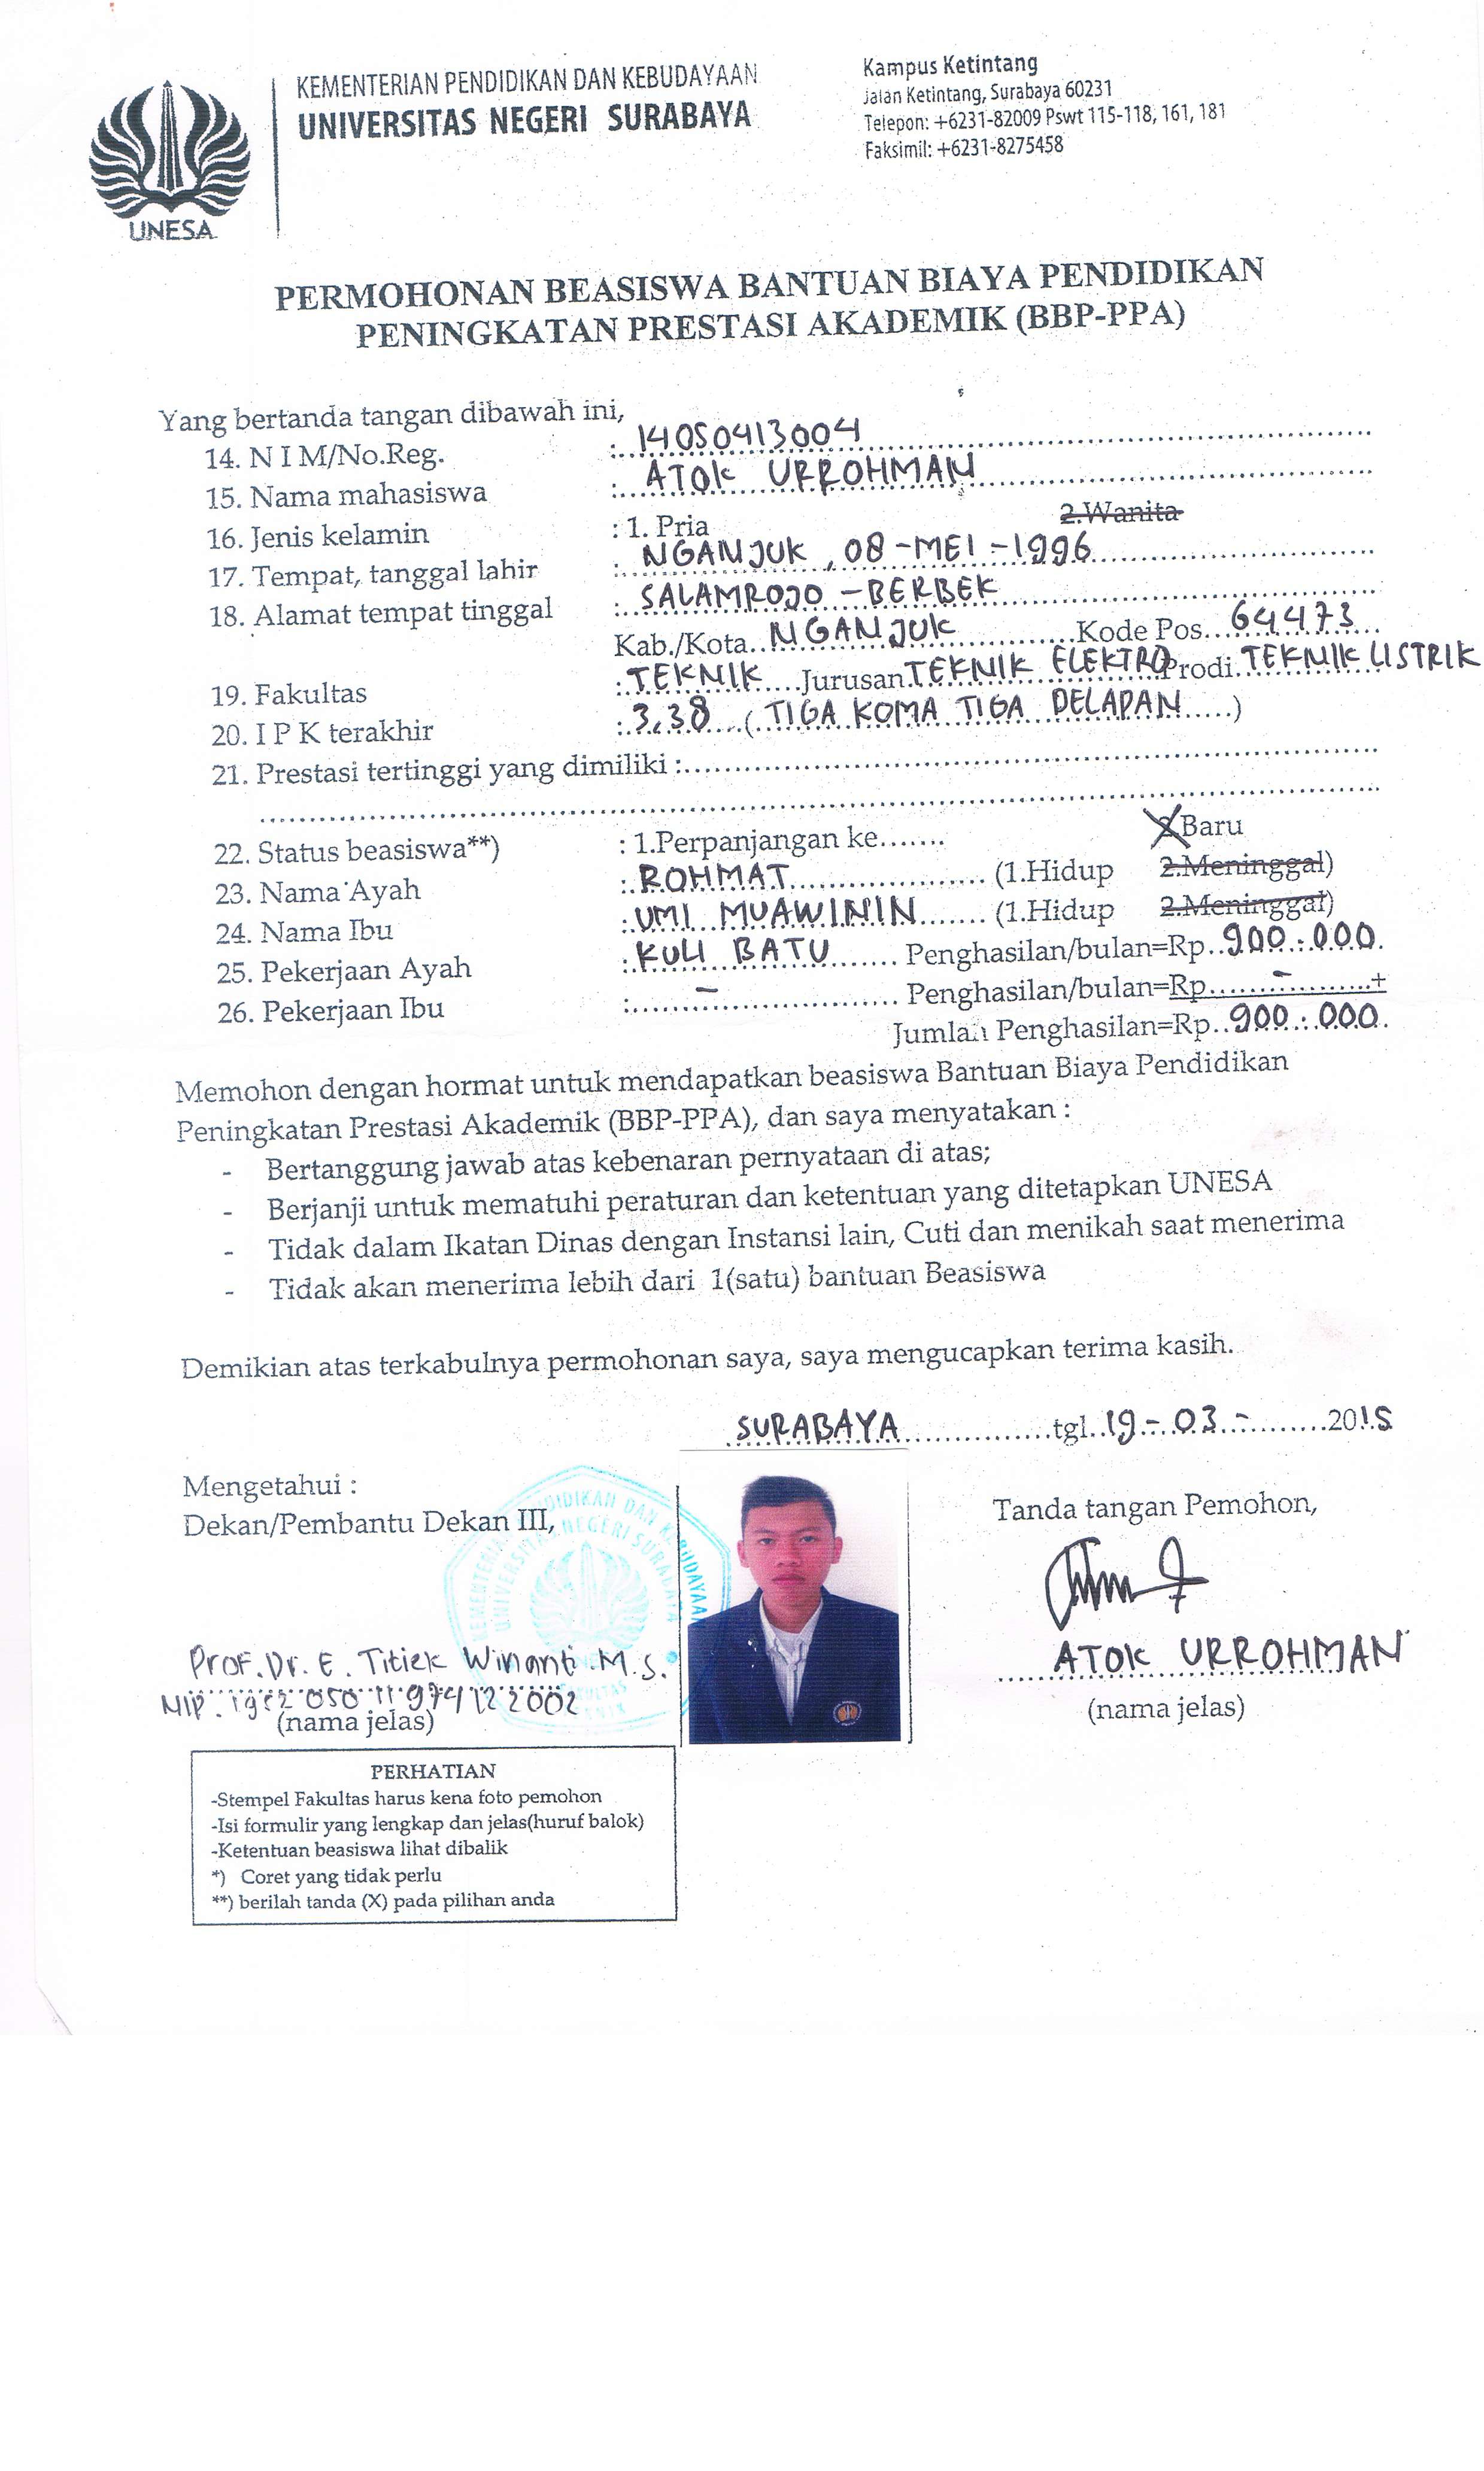 KEMENTERIAN PENDIDIKAN DAN KEBUDAYAAN
UNIVERSITAS NEGERI SURABAYA
UNESA
Kampus Ketintang
Jalan Ketintang, Surabaya 60231
Telepon: +6231-82009 Pswt 115-118, 161, 181
Faksimil: +6231-8275458
PERMOHONAN BEASISWA BANTUAN BIAYA PENDIDIKAN
PENINGKATAN PRESTASI AKADEMIK (BBP-PPA)
Yang bertanda tangan dibawah ini,
14. N I M/No.Reg. : 14050413004
15. Nama mahasiswa : ATOK URROHMAN
16. Jenis kelamin : 1. Pria 2.Wanita
17. Tempat, tanggal lahir : NGANJUK , 08 - MEI - 1996
18. Alamat tempat tinggal : SALAMROJO - BERBEK
Kab./Kota NGANJUK Kode Pos 64473
19. Fakultas : TEKNIK Jurusan TEKNIK ELEKTRO Prodi TEKNIK LISTRIK
20. I P K terakhir : 3,38 ( TIGA KOMA TIGA DELAPAN )
21. Prestasi tertinggi yang dimiliki :
22. Status beasiswa**) : 1.Perpanjangan ke....... 2.Baru
23. Nama Ayah : ROHMAT (1.Hidup 2.Meninggal)
24. Nama Ibu : UMI MUAWININ (1.Hidup 2.Meninggal)
25. Pekerjaan Ayah : KULI BATU Penghasilan/bulan=Rp 900.000
26. Pekerjaan Ibu : - Penghasilan/bulan=Rp - +
Jumlah Penghasilan=Rp 900.000
Memohon dengan hormat untuk mendapatkan beasiswa Bantuan Biaya Pendidikan
Peningkatan Prestasi Akademik (BBP-PPA), dan saya menyatakan :
- Bertanggung jawab atas kebenaran pernyataan di atas;
- Berjanji untuk mematuhi peraturan dan ketentuan yang ditetapkan UNESA
- Tidak dalam Ikatan Dinas dengan Instansi lain, Cuti dan menikah saat menerima
- Tidak akan menerima lebih dari 1(satu) bantuan Beasiswa
Demikian atas terkabulnya permohonan saya, saya mengucapkan terima kasih.
SURABAYA tgl. 19 - 03 - 2015
Mengetahui :
Dekan/Pembantu Dekan III,
Tanda tangan Pemohon,
Prof. Dr. E. Titiek Winanti. M.S.
NIP.
(nama jelas)
ATOK URROHMAN
(nama jelas)
PERHATIAN
-Stempel Fakultas harus kena foto pemohon
-Isi formulir yang lengkap dan jelas(huruf balok)
-Ketentuan beasiswa lihat dibalik
*) Coret yang tidak perlu
**) berilah tanda (X) pada pilihan anda